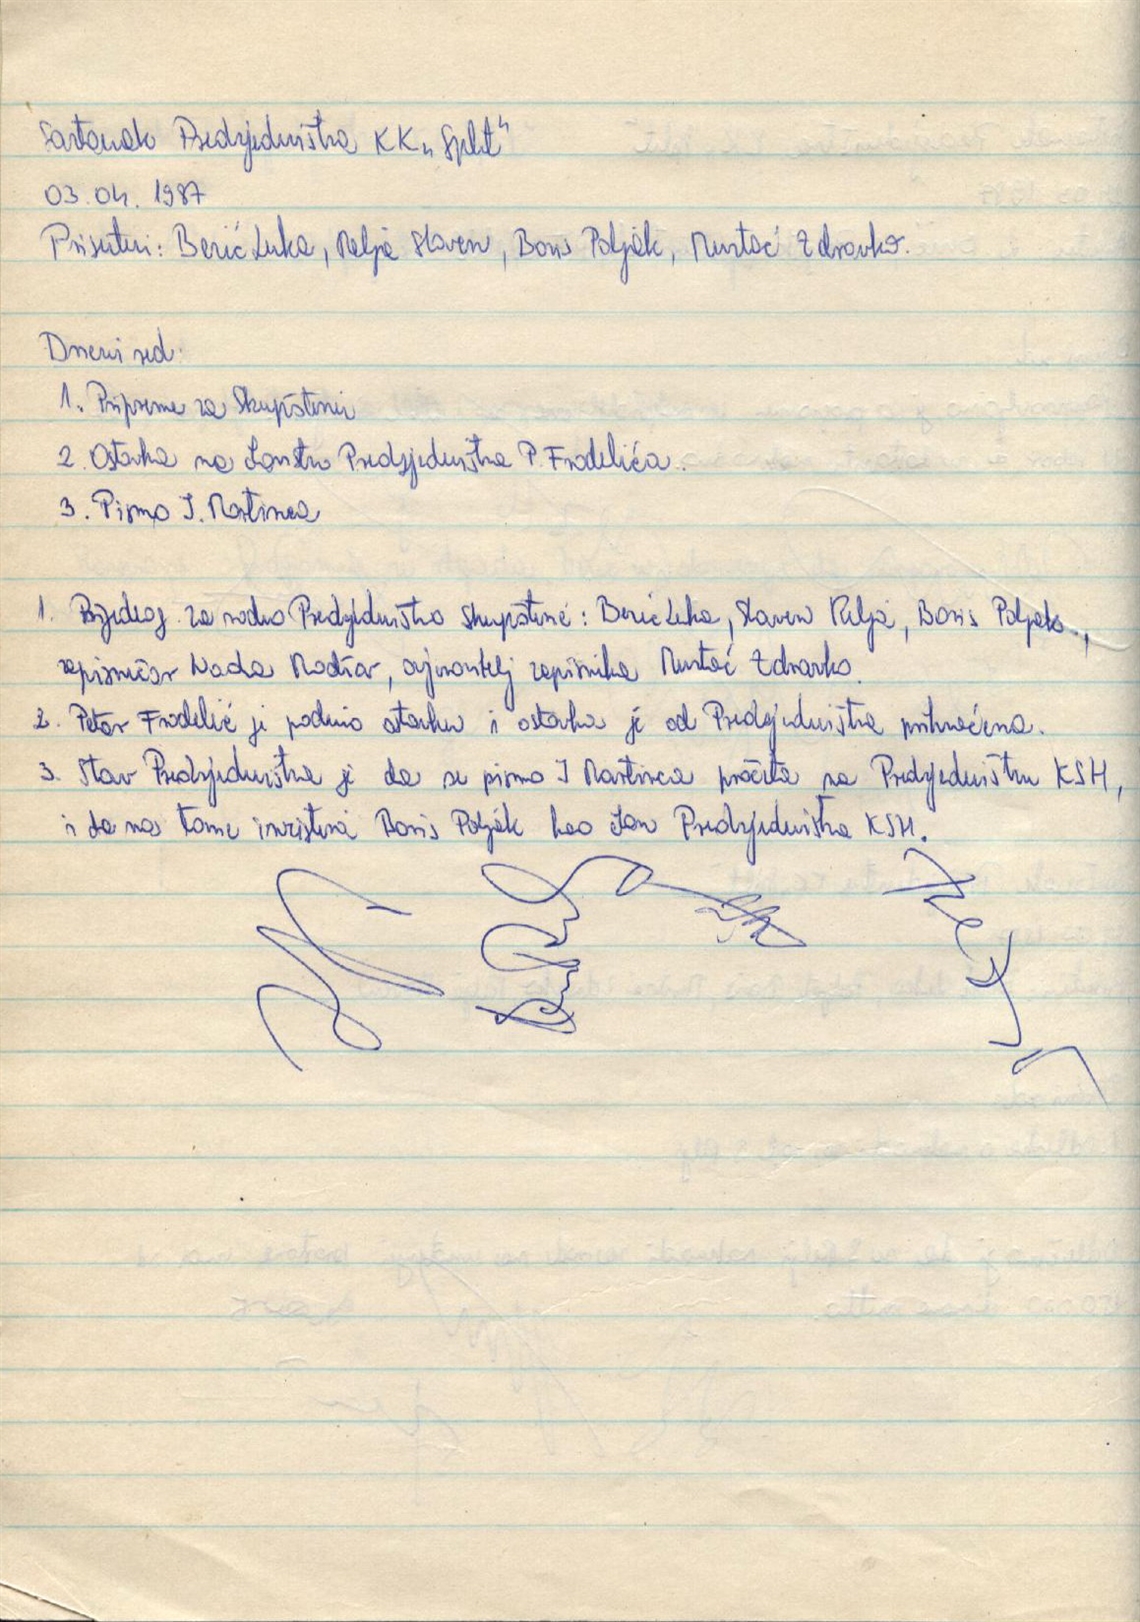 Sastanak Predsjedništva KK „Split"
03.04. 1987
Prisutni: Berić Luka, Relja Slaven, Boris Poljak, Mustać Zdravko.
Dnevni red:
1. Pripreme za Skupštinu
2. Ostavka na članstvo Predsjedništva P. Fradelića.
3. Pismo I. Martinca
1. Prijedlog za radno Predsjedništvo Skupštine: Berić Luka, Slaven Relja, Boris Poljak,
zapisničar Nada Madžar, ovjerovitelj zapisnika Mustać Zdravko.
2. Petar Fradelić je podnio ostavku i ostavka je od Predsjedništva prihvaćena.
3. Stav Predsjedništva je da se pismo I Martinca pročita na Predsjedništvu KSH,
i da na tome inzistira Boris Poljak kao član Predsjedništva KSH.